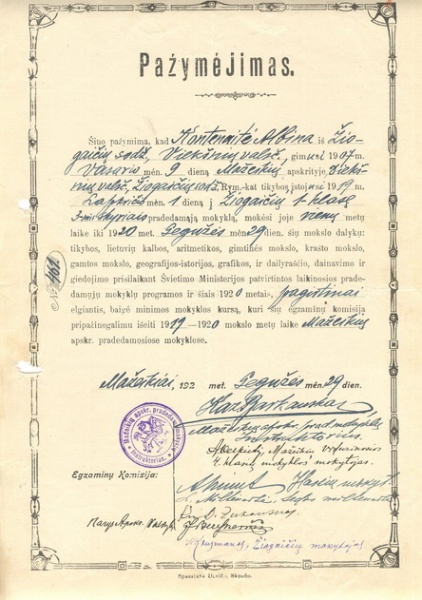 Pažymėjimas.
Šiuo pažymima, kad Kontenaitė Albina iš Žio-
gaičių sodž, Viekšnių valsč., gimusi 1907 m.
Vasario mėn. 9 dieną Mažeikių apskrityje Viekš-
nių valsč, Žiogaičių sodž Rym.-kat tikybos, įstojusi 1919 m.
Lapkričio mėn. 1 dieną į Žiogaičių 1-klasę
skyriais pradedamąją mokyklą, mokėsi joje vienus metus
laike iki 1920 met. Gegužės mėn. 29 dien. šių mokslo dalykų:
tikybos, lietuvių kalbos, aritmetikos, gimtinės mokslo, krašto mokslo,
gamtos mokslo, geografijos-istorijos, grafikos, ir dailyraščio, dainavimo ir
giedojimo prisilaikant Švietimo Ministerijos patvirtintos laikinosios prade-
damųjų mokyklų programos ir šiais 1920 metais, pagirtinai
elgiantis, baigė minimos mokyklos kursą, kurį šių egzaminų komisija
pripažino galimu išeiti 1919—1920 mokslo metų laike Mažeikių
apskr. pradedamosiose mokyklose.
№ 161
Mažeikiai, 192 met. Gegužės mėn. 29 dien.
Kaz. Barkauskas
Mažeikių apskr. prad. mokyklų
Instruktorius.
Mažeikių apskr. pradedamųjų mokyklų
Instruktorius
4 klasių mokyklos mokytojas.
Egzaminų Komisija:
Narys Apskr. Valdyb.
Žiogaičių mokytojas
Spaustuvė Skuode.